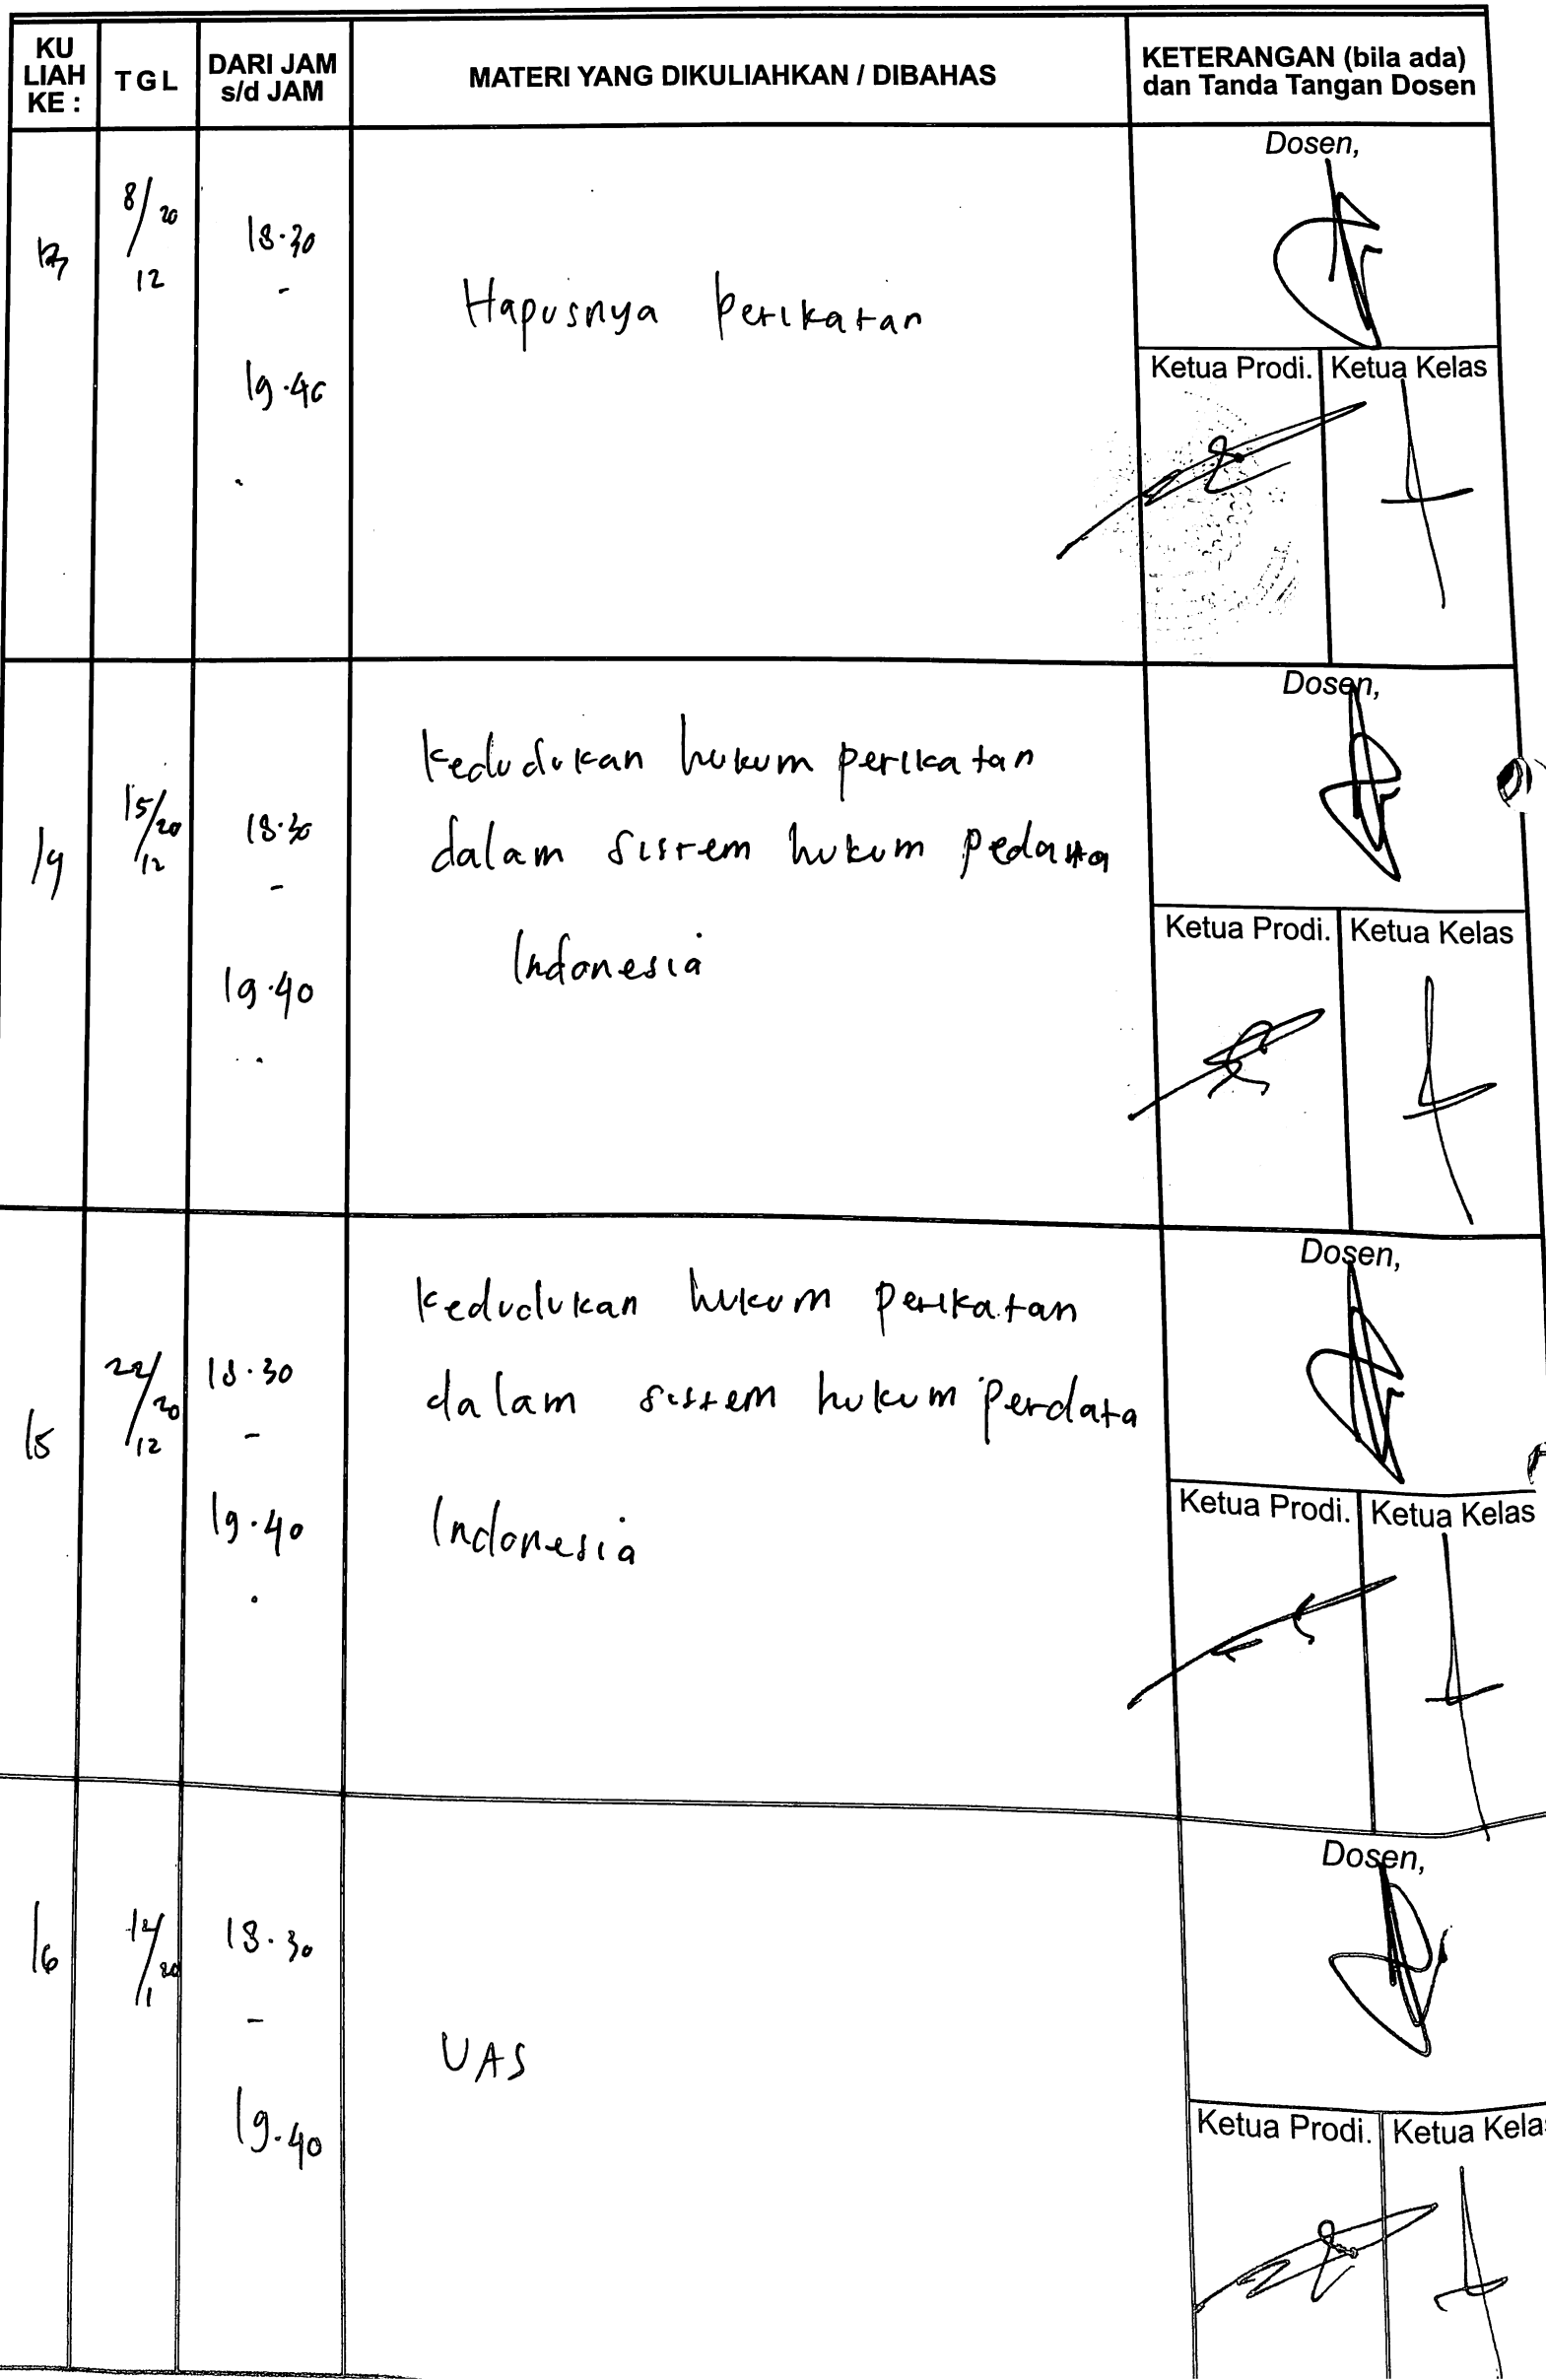 KU LIAH KE :
TGL
DARI JAM s/d JAM
MATERI YANG DIKULIAHKAN / DIBAHAS
KETERANGAN (bila ada) dan Tanda Tangan Dosen
13
8/12 20
18.30
-
19.40
Hapusnya perikatan
Dosen,
Ketua Prodi.
Ketua Kelas
14
15/12 20
18.30
-
19.40
Kedudukan hukum perikatan
dalam sistem hukum pedata
Indonesia
Dosen,
Ketua Prodi.
Ketua Kelas
15
22/12 20
18.30
-
19.40
Kedudukan hukum perikatan
dalam sistem hukum perdata
Indonesia
Dosen,
Ketua Prodi.
Ketua Kelas
16
18.30
-
19.40
UAS
Dosen,
Ketua Prodi.
Ketua Kelas